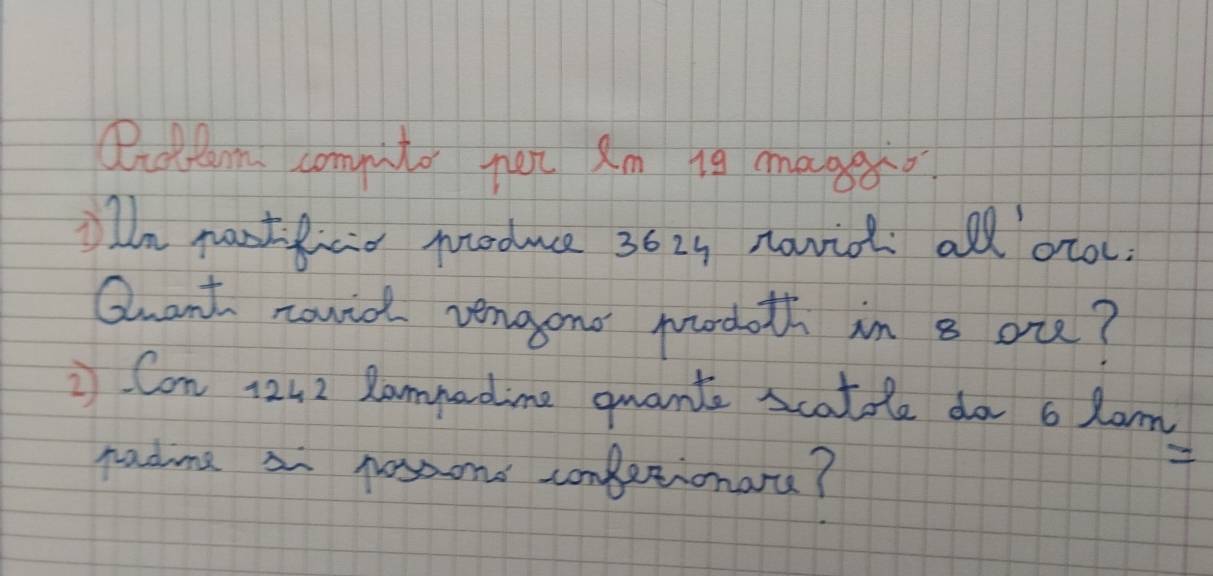 Problemi compito per lm 19 maggio.
1) Un pastificio produce 3624 ravioli all'ora.
Quanti ravioli vengono prodotti in 8 ore?
2) Con 1242 lampadine quante scatole da 6 lam=
padine si possono confezionare?